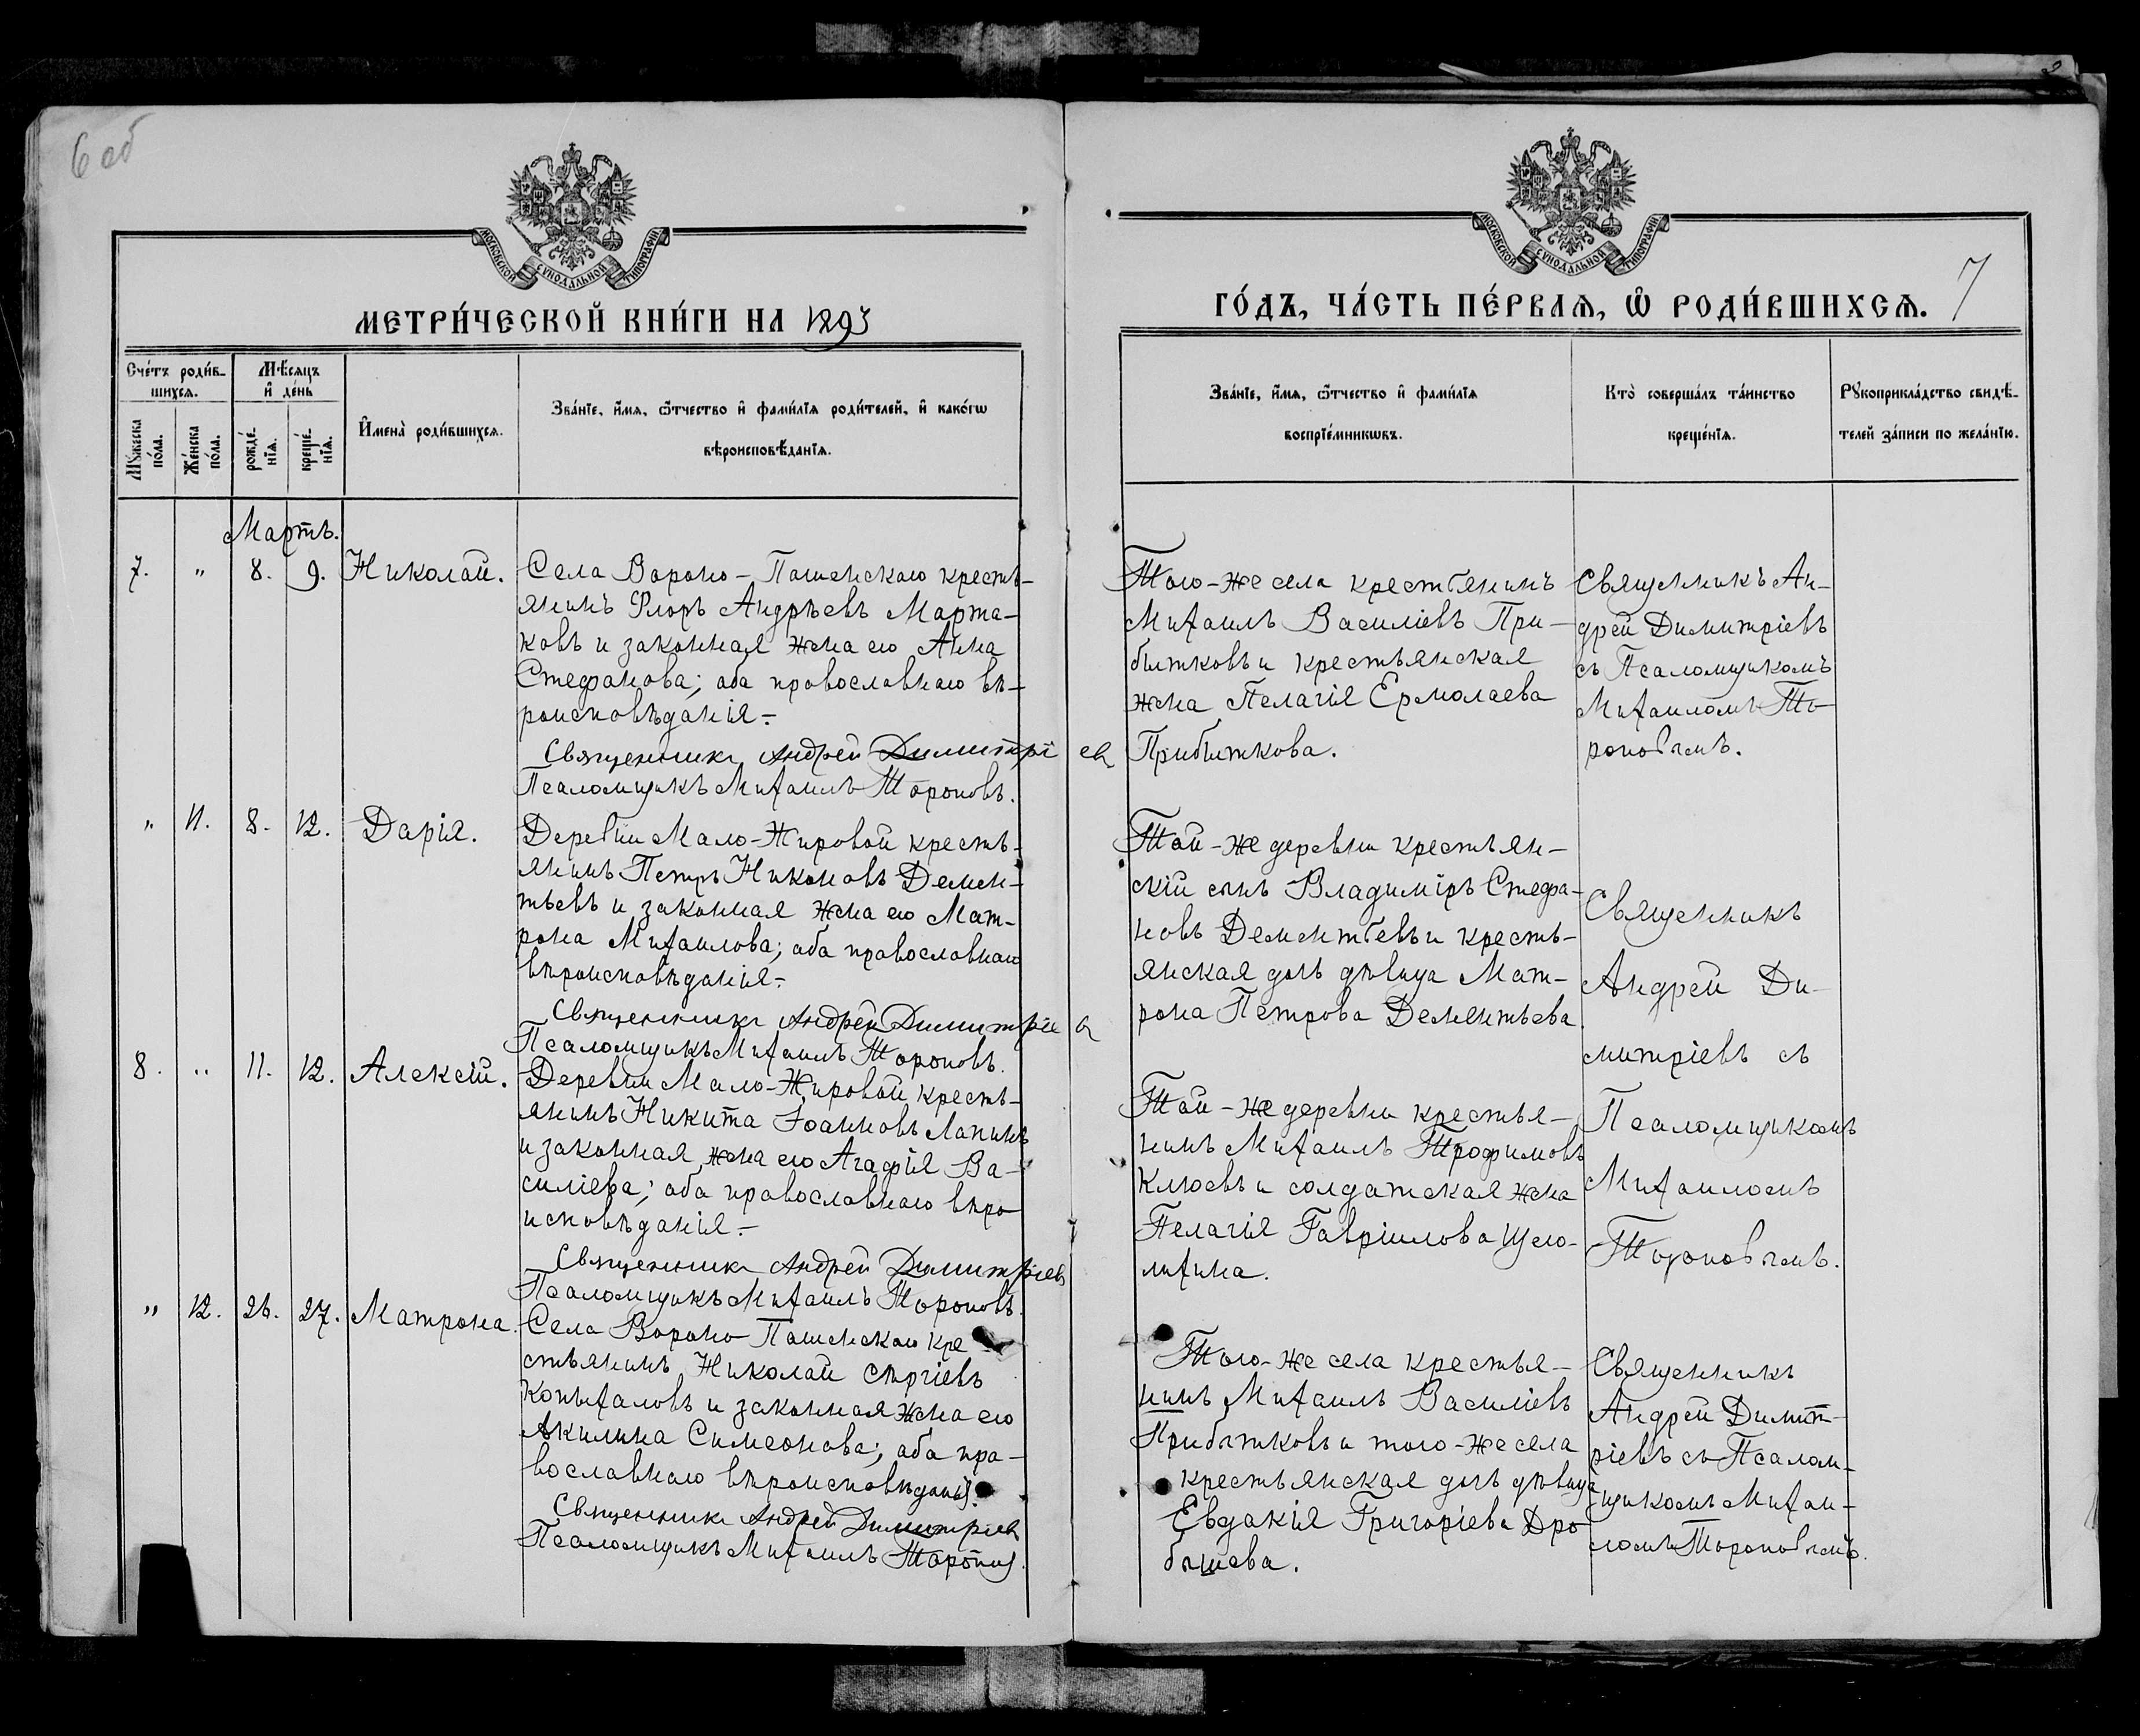 6 об
МОСКОВСКОЙ СУНОДАЛЬНОЙ ТИПОГРАФІИ
МЕТРИ́ЧЕСКОЙ КНИ́ГИ НА 1893
Сче́тъ роди́в-
шихсѧ.
Мѣ́сѧцъ
и҆ де́нь
Мꙋ́жеска
по́ла.
Же́нска
по́ла.
рожде́-
нїѧ.
креще́-
нїѧ.
И҆мена̀ роди́вшихсѧ.
Зва́нїе, и҆́мѧ, ѻ҆́тчество и҆ фами́лїѧ роди́телей, и҆ како́гѡ
вѣроисповѣ́данїѧ.
Мартъ.
7. " 8. 9. Николай.
Села Вороно-Пашенскаго кресть-
янинъ Флоръ Андрѣевъ Марта-
ковъ и законная жена его Анна
Стефанова; оба православнаго вѣ-
роисповѣданія.-
Священникъ Андрей Димитріев
Псаломщикъ Михаилъ Тороповъ.
" 11. 8. 12. Дарія.
Деревни Мало-Жировой кресть-
янинъ Петръ Никоновъ Демен-
тьевъ и законная жена его Мат-
рона Михаилова; оба православнаго
вѣроисповѣданія.-
Священникъ Андрей Димитріев
Псаломщикъ Михаилъ Тороповъ.
8. " 11. 12. Алексій.
Деревни Мало-Жировой кресть-
янинъ Никита Іоанновъ Лапинъ
и законная жена его Агафія Ва-
силіева; оба православнаго вѣро
исповѣданія.-
Священникъ Андрей Димитріев
Псаломщикъ Михаилъ Тороповъ.
" 12. 26. 27. Матрона.
Села Вороно-Пашенскаго кре-
стьянинъ Николай Сергіевъ
Копыталовъ и законная жена его
Акилина Симеонова; оба пра-
вославнаго вѣроисповѣданія.
Священникъ Андрей Димитріев
Псаломщикъ Михаилъ Тороповъ.
МОСКОВСКОЙ СУНОДАЛЬНОЙ ТИПОГРАФІИ
ГО́ДЪ, ЧА́СТЬ ПЕ́РВАѦ, Ѽ РОДИ́ВШИХСѦ. 7
Зва́нїе, и҆́мѧ, ѻ҆́тчество и҆ фами́лїѧ
воспрїе́мникѡвъ.
Кто̀ соверша́лъ та́инство
креще́нїѧ.
Рꙋкоприкла́дство свидѣ́-
телей за́писи по жела́нїю.
Того-же села крестьянинъ
Михаилъ Василіевъ При-
бытковъ и крестьянская
жена Пелагія Ермолаева
Прибыткова.
Священникъ Ан-
дрей Димитріевъ
съ Псаломщикомъ
Михаиломъ То-
роповымъ.
Той-же деревни крестьян-
скій сынъ Владиміръ Стефа-
новъ Дементьевъ и кресть-
янская дочь дѣвица Мат-
рона Петрова Дементьева.
Той-же деревни крестья-
нинъ Михаилъ Трофимовъ
Клюевъ и солдатская жена
Пелагія Гавріилова Щего-
лихина.
Священникъ
Андрей Ди-
митріевъ съ
Псаломщикомъ
Михаиломъ
Тороповымъ.
Того-же села крестья-
нинъ Михаилъ Василіевъ
Прибытковъ и того-же села
крестьянская дочь дѣвица
Евдакія Григоріева Дро
бышева.
Священникъ
Андрей Димит-
ріевъ съ Псалом-
щикомъ Михаи-
ломъ Тороповымъ.